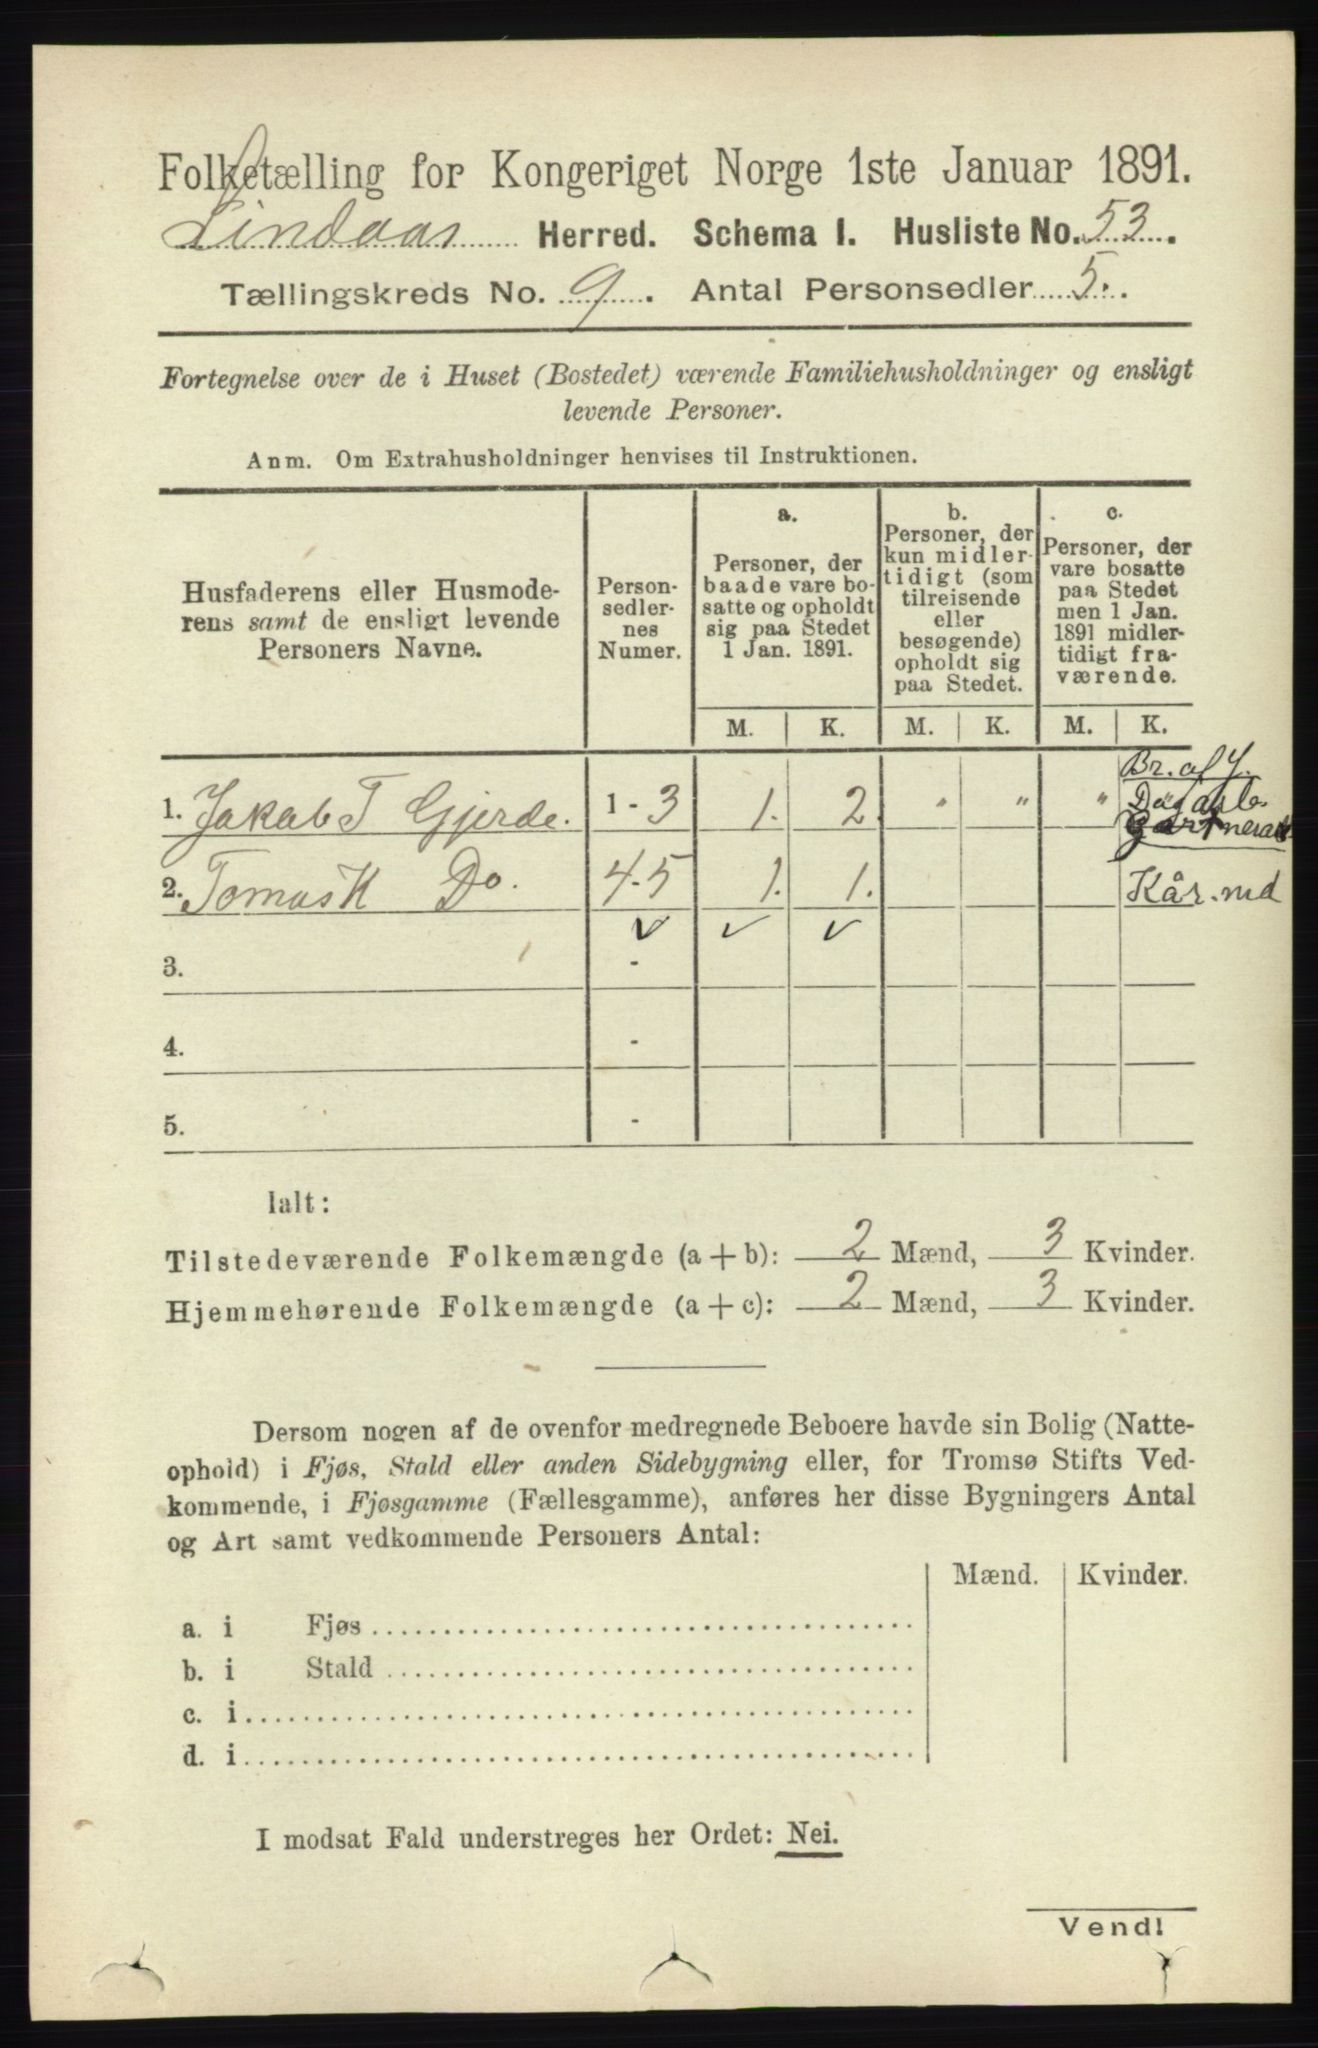 Folketælling for Kongeriget Norge 1ste Januar 1891.
Lindaas Herred. Schema I. Husliste No. 53.
Tællingskreds No. 9. Antal Personsedler 5.
Fortegnelse over de i Huset (Bostedet) værende Familiehusholdninger og ensligt
levende Personer.
Anm. Om Extrahusholdninger henvises til Instruktionen.
Husfaderens eller Husmode-
rens samt de ensligt levende
Personers Navne.
Person-
sedler-
nes
Numer.
a.
Personer, der
baade vare bo-
satte og opholdt
sig paa Stedet
1 Jan. 1891.
b.
Personer, der
kun midler-
tidigt (som
tilreisende
eller
besøgende)
opholdt sig
paa Stedet.
c.
Personer, der
vare bosatte
paa Stedet
men 1 Jan.
1891 midler-
tidigt fra-
værende.
M. K. M. K. M. K.
Br. af J.
1. Jakob T Gjerde. 1 - 3 1. 2. " " "
2. Tomas K Do. 4-5 1. 1. Kår. md
✓ ✓ ✓
3. -
4. -
5. -
Ialt:
Tilstedeværende Folkemængde (a + b): 2 Mænd, 3 Kvinder.
Hjemmehørende Folkemængde (a + c): 2 Mænd, 3 Kvinder.
Dersom nogen af de ovenfor medregnede Beboere havde sin Bolig (Natte-
ophold) i Fjøs, Stald eller anden Sidebygning eller, for Tromsø Stifts Ved-
kommende, i Fjøsgamme (Fællesgamme), anføres her disse Bygningers Antal
og Art samt vedkommende Personers Antal:
Mænd. Kvinder.
a. i Fjøs
b. i Stald
c. i
d. i
I modsat Fald understreges her Ordet: Nei.
Vend!